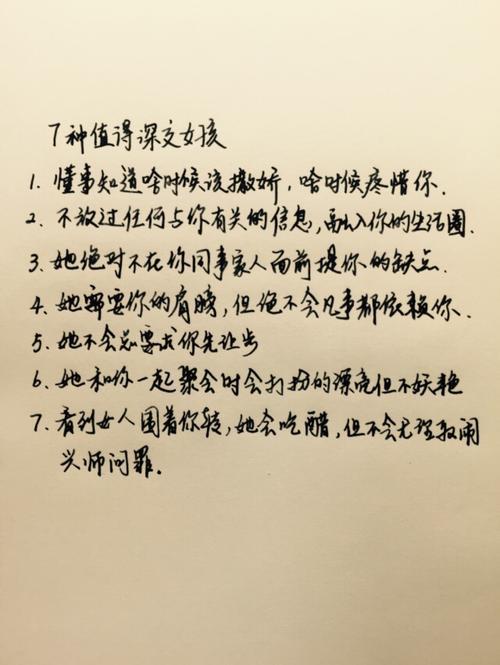 7种值得深交女孩
1. 懂事知道啥时候该撒娇，啥时候疼惜你.
2. 不放过任何与你有关的信息，融入你的生活圈.
3. 她绝对不在你同事家人面前提你的缺点.
4. 她需要你的肩膀，但绝不会凡事都依赖你.
5. 她不会总要求你先让步
6. 她和你一起聚会时会打扮的漂亮但不妖艳
7. 看到女人围着你转，她会吃醋，但不会无理取闹
兴师问罪.